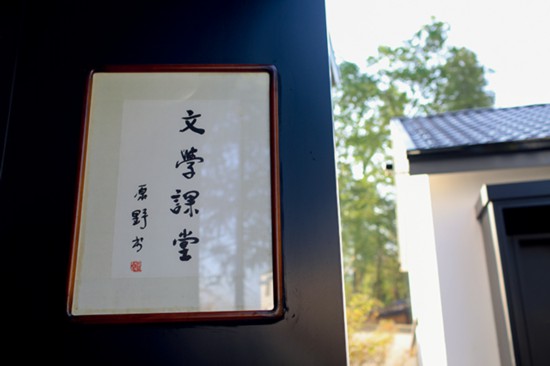 文學課堂
原野书